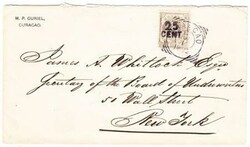 M. P. CURIEL,
CURAÇAO.
25
CENT
James A. Whitlock Esqre
Secretary of the Board of Underwriters
51 Wall Street
New York